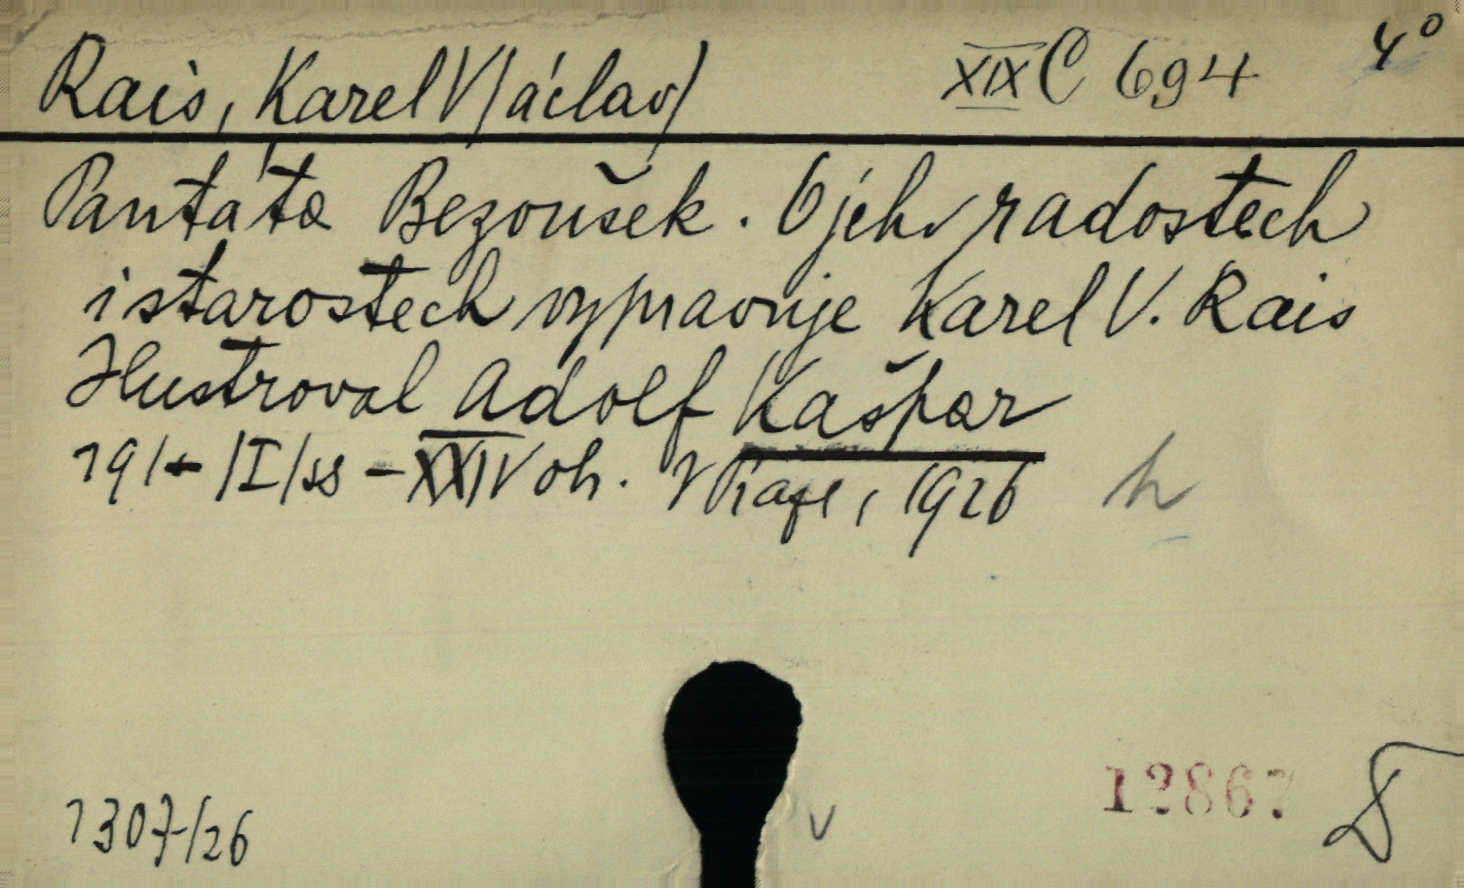 Rais, Karel V/áclav/ XIX C 694 4°
Pantáta Bezoušek. O jeho radostech
i starostech vypravuje Karel V. Rais
Ilustroval Adolf Kašpar
191 + /I/ ss - XXIV oh. V Praze, 1926 h
1307/26 v